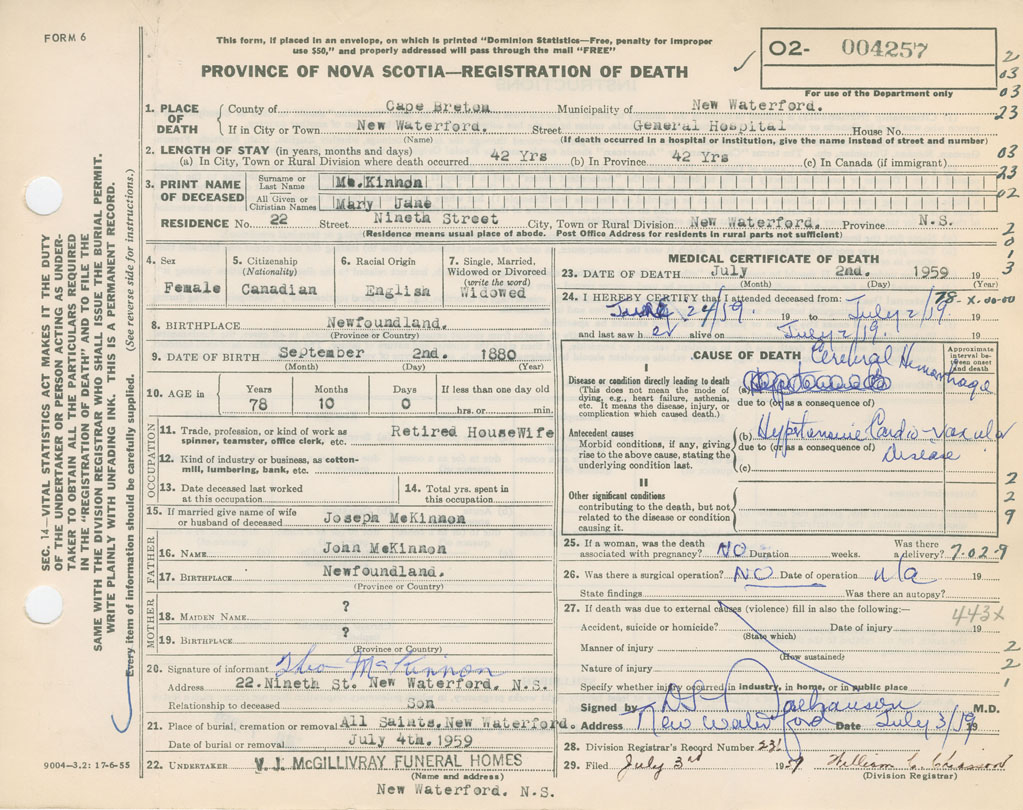 FORM 6
This form, if placed in an envelope, on which is printed "Dominion Statistics—Free, penalty for improper
use $50," and properly addressed will pass through the mail "FREE"
PROVINCE OF NOVA SCOTIA—REGISTRATION OF DEATH
O2- 004257
For use of the Department only
SEC. 14—VITAL STATISTICS ACT MAKES IT THE DUTY
OF THE UNDERTAKER OR PERSON ACTING AS UNDER-
TAKER TO OBTAIN ALL THE PARTICULARS REQUIRED
IN THE "REGISTRATION OF DEATH" AND TO FILE THE
SAME WITH THE DIVISION REGISTRAR WHO SHALL ISSUE THE BURIAL PERMIT.
WRITE PLAINLY WITH UNFADING INK. THIS IS A PERMANENT RECORD.
Every item of information should be carefully supplied. (See reverse side for instructions.)
1. PLACE OF DEATH
County of Cape Breton Municipality of New Waterford.
If in City or Town New Waterford. Street General Hospital House No.
(Name) (If death occurred in a hospital or institution, give the name instead of street and number)
2. LENGTH OF STAY (in years, months and days)
(a) In City, Town or Rural Division where death occurred 42 Yrs (b) In Province 42 Yrs (c) In Canada (if immigrant)
3. PRINT NAME OF DECEASED
Surname or Last Name Mc.Kinnon
All Given or Christian Names Mary Jane
RESIDENCE No. 22 Street Nineth Street City, Town or Rural Division New Waterford. Province N.S.
(Residence means usual place of abode. Post Office Address for residents in rural parts not sufficient)
2
03
03
23
03
23
02
2
0
1
3
4. Sex
Female
5. Citizenship
(Nationality)
Canadian
6. Racial Origin
English
7. Single, Married,
Widowed or Divorced
(write the word)
Widowed
8. BIRTHPLACE Newfoundland.
(Province or Country)
9. DATE OF BIRTH September 2nd. 1880
(Month) (Day) (Year)
10. AGE in Years Months Days If less than one day old
78 10 0 hrs. or min.
OCCUPATION
11. Trade, profession, or kind of work as
spinner, teamster, office clerk, etc. Retired HouseWife
12. Kind of industry or business, as cotton-
mill, lumbering, bank, etc.
13. Date deceased last worked
at this occupation
14. Total yrs. spent in
this occupation
15. If married give name of wife
or husband of deceased Joseph McKinnon
FATHER
16. NAME John McKinnon
17. BIRTHPLACE Newfoundland.
(Province or Country)
MOTHER
18. MAIDEN NAME ?
19. BIRTHPLACE ?
(Province or Country)
20. Signature of informant Theo McKinnon
Address 22.Nineth St. New Waterford. N.S.
Relationship to deceased Son
21. Place of burial, cremation or removal All Saints,New Waterford.
Date of burial or removal July 4th.1959
22. UNDERTAKER V. J. McGILLIVRAY FUNERAL HOMES
(Name and address)
New Waterford. N.S.
9004—3.2: 17-6-55
MEDICAL CERTIFICATE OF DEATH
23. DATE OF DEATH July 2nd. 1959 19
(Month) (Day) (Year)
24. I HEREBY CERTIFY that I attended deceased from: 78-X-00-00
24/19. 19 to July 2/19
and last saw her alive on July 2/19. 19
CAUSE OF DEATH Cerebral Hemorrhage
Approximate
interval be-
tween onset
and death
I
Disease or condition directly leading to death (a)
(This does not mean the mode of
dying, e.g., heart failure, asthenia,
etc. It means the disease, injury, or
complication which caused death.)
due to (or as a consequence of)
Antecedent causes (b) Hypertensive Cardio-vascular
Disease
Morbid conditions, if any, giving
rise to the above cause, stating the
underlying condition last.
due to (or as a consequence of)
(c)
II
Other significant conditions
contributing to the death, but not
related to the disease or condition
causing it.
2
2
9
25. If a woman, was the death
associated with pregnancy? NO Duration weeks. Was there
a delivery? 7-02-9
26. Was there a surgical operation? NO Date of operation n/a 19
State findings Was there an autopsy?
27. If death was due to external causes (violence) fill in also the following:—
443X
Accident, suicide or homicide? Date of injury 19
(State which)
Manner of injury 2
(How sustained)
Nature of injury 2
Specify whether injury occurred in industry, in home, or in public place 1
Signed by M.D.
Address New Waterford Date July 3/19 19
28. Division Registrar's Record Number 231
29. Filed July 3rd 1959 William
(Division Registrar)